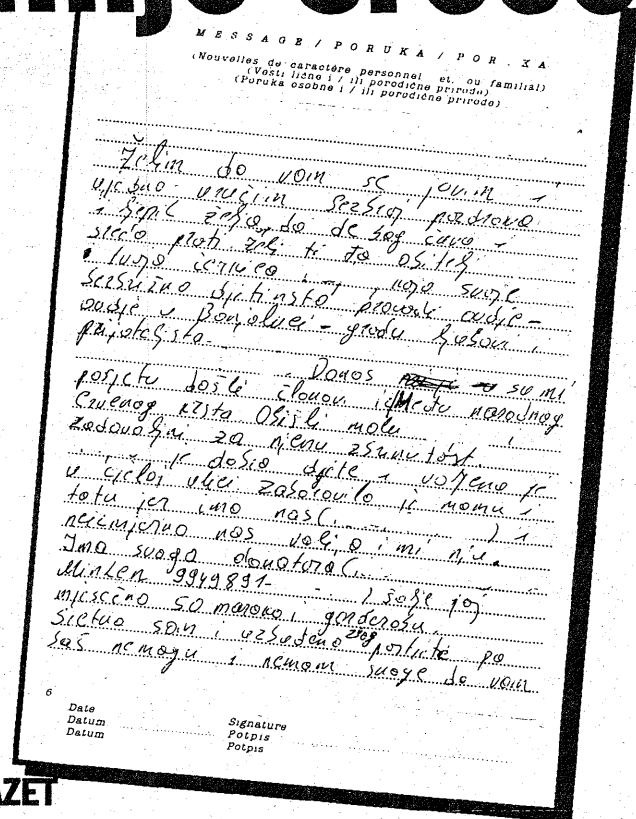 MESSAGE / PORUKA / POR.XA
(Nouvelles de caractère personnel et. ou familial)
(Vesti lične i / ili porodične prirode)
(Poruka osobne i / ili porodične prirode)
Želim da vam se javim i
ujedno uručim pozdrave
i želju da de bog čuva i
sreća prati želi ti ta obitelj
svoje
djetinstvo provodi ovdje-
ovdje u Banjoluci - gradu ljubavi,
Danas su mi
posjetu došli članovi Među narodnog
Crvenog krsta Obišli malu
za njenu
došla dijete i voljena je
u cijeloj ulici zaboravila je mamu i
tatu jer ima nas (..........) i
neizmjerno nas voli, a i mi nju.
Ima svoga donatora (..........
Minhen 9949891- ) šalje joj
mjesečno 50 maraka i garderobu.
Sretna sam i uzbuđena zbog posjete pa
baš nemogu i nemam svoje da vam
6
Date
Datum
Datum
Signature
Potpis
Potpis
AZET